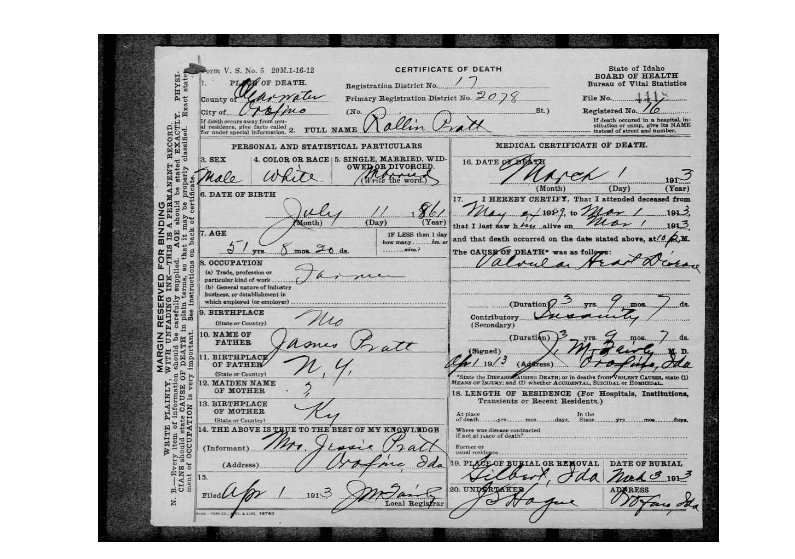 Form V. S. No. 5 20M.1-16-12
CERTIFICATE OF DEATH
State of Idaho
BOARD OF HEALTH
Bureau of Vital Statistics
1. PLACE OF DEATH.
County of Clearwater
City of Orofino
If death occurs away from usual residence, give facts called for under special information.
Registration District No. 17
Primary Registration District No. 2078
(No. St.)
File No.
Registered No. 16
If death occured in a hospital, institution or camp, give its NAME instead of street and number.
2. FULL NAME Rollin Pratt
PERSONAL AND STATISTICAL PARTICULARS
3. SEX Male
4. COLOR OR RACE White
5. SINGLE, MARRIED, WIDOWED OR DIVORCED. Married
(Write the word.)
6. DATE OF BIRTH
July 11 1861
(Month) (Day) (Year)
7. AGE
51 yrs. 8 mos. 20 ds.
IF LESS than 1 day
how many hrs. or
mins.?
8. OCCUPATION
(a) Trade, profession or particular kind of work Farmer
(b) General nature of industry business, or establishment in which employed (or employer)
9. BIRTHPLACE
(State or Country) Mo
10. NAME OF FATHER James Pratt
11. BIRTHPLACE OF FATHER N. Y.
(State or Country)
12. MAIDEN NAME OF MOTHER ?
13. BIRTHPLACE OF MOTHER Ky
(State or Country)
14. THE ABOVE IS TRUE TO THE BEST OF MY KNOWLEDGE
(Informant) Mrs. Jessie Pratt
(Address) Orofino, Ida
15.
Filed Apr 1 1913
Local Registrar
MEDICAL CERTIFICATE OF DEATH.
16. DATE OF DEATH
March 1 1913
(Month) (Day) (Year)
17. I HEREBY CERTIFY, That I attended deceased from
May to Mar 1 1913,
that I last saw h alive on Mar 1 1913
and that death occurred on the date stated above, at M.
The CAUSE OF DEATH* was as follows:
Valvular Heart Disease
(Duration) 3 yrs. 9 mos. 7 ds.
Contributory Insanity
(Secondary)
(Duration) 3 yrs. 9 mos. 7 ds.
(Signed) J. M. M. D.
Apr 1 1913 (Address) Orofino, Ida
*State the DISEASE CAUSING DEATH; or in deaths from VIOLENT CAUSES, state (1) MEANS OF INJURY; and (2) whether ACCIDENTAL, SUICIDAL or HOMICIDAL.
18. LENGTH OF RESIDENCE (For Hospitals, Institutions, Transients or Recent Residents.)
At place of death yrs. mos. days. In the State yrs. mos. days.
Where was disease contracted if not at place of death?
Former or usual residence
19. PLACE OF BURIAL OR REMOVAL
Gilbert, Ida
DATE OF BURIAL
March 3 1913
20. UNDERTAKER
J S Hogue
ADDRESS
Orofino, Ida
MARGIN RESERVED FOR BINDING
WRITE PLAINLY, WITH UNFADING INK—THIS IS A PERMANENT RECORD.
N. B.—Every item of information should be carefully supplied. AGE should be stated EXACTLY. PHYSICIANS should state CAUSE OF DEATH in plain terms, so that it may be properly classified. Exact statement of OCCUPATION is very important. See instructions on back of certificate.